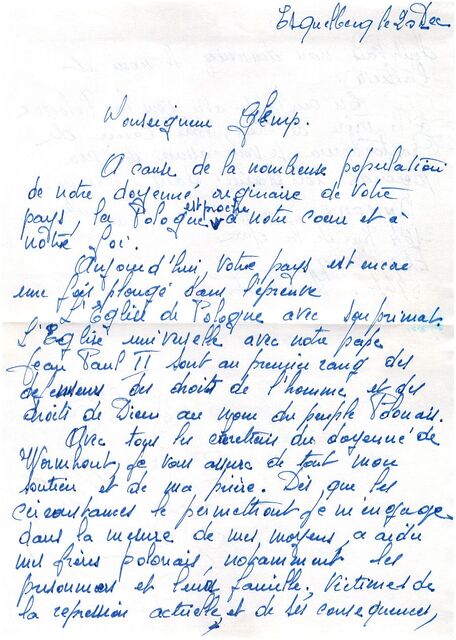 Esquelbecq le 20 Dec
Monseigneur Glemp.
A cause de la nombreuse population
de notre doyenné originaire de votre
pays, la Pologne est proche à notre coeur et à
notre foi.
Aujourd'hui, votre pays est encore
une fois plongé dans l'épreuve
L'Eglise de Pologne avec son primat
L'Eglise universelle avec notre pape
Jean Paul II sont au premier rang des
defenseurs des droits de l'homme et des
droits de Dieu au nom du peuple Polonais.
Avec tous les chrétiens du doyenné de
Wormhout, je vous assure de tout mon
soutien et de ma prière. Dès que les
circonstances le permettront je m'engage
dans la mesure de mes moyens, à aider
mes frères polonais, notamment les
prisonniers et leurs famille, victimes de
la repression actuelle et de ses consequences,